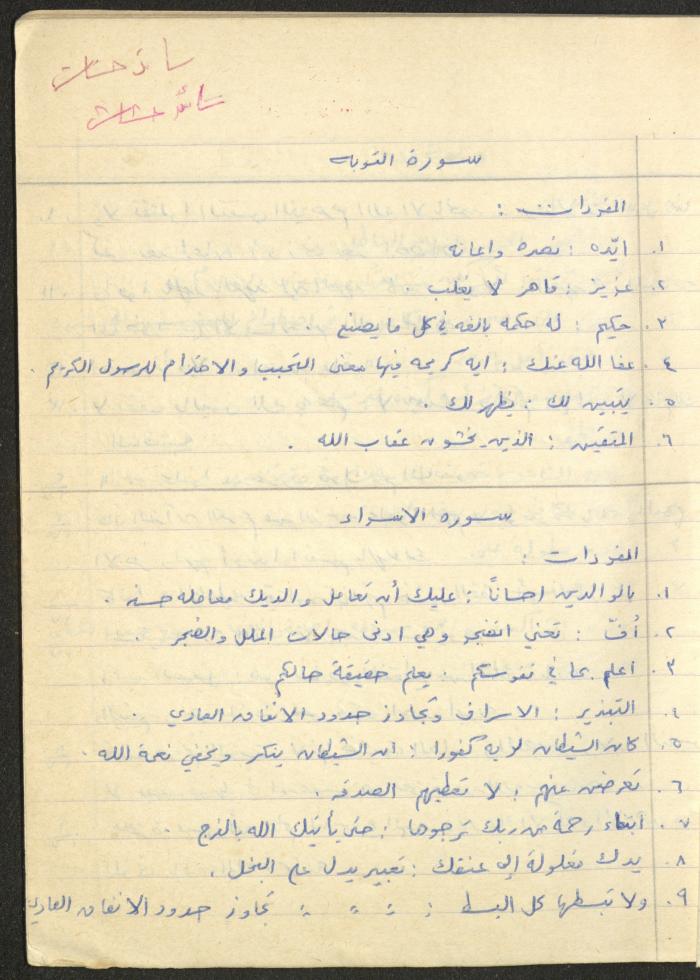 سائد حنات
سائد حنات
سورة التوبه
المفردات :
١. ايّده : نصره واعانه
٢. عزيز : قاهر لا يغلب .
٣. حكيم : له حكمه بالغه في كل ما يصنع .
٤. عفا الله عنك : ايه كريمه فيها معنى التحبب والاحترام للرسول الكريم .
٥. يتبين لك : يظهر لك .
٦. المتقين : الذين يخشون عقاب الله .
سوره الاسراء
المفردات :
١. بالوالدين احساناً : عليك أن تعامل والديك معامله حسنه .
٢. أُفّ : تعني اتضجر وهي ادنى حالات الملل والضجر .
٣. اعلم بما في نفوسكم : يعلم حقيقة حالكم
٤. التبذير : الاسراف وتجاوز حدود الانفاق العادي .
٥. كان الشيطان لربه كفورا : ان الشيطان ينكر ويخفي نعمة الله .
٦. تعرضن عنهم : لا تعطيهم الصدقه .
٧. ابتغاء رحمة من ربك ترجوها : حتى يأتيك الله بالفرج .
٨. يدك مغلولة إلى عنقك : تعبير يدل على البخل .
٩. ولا تبسطها كل البسط : = = = تجاوز حدود الانفاق العادي